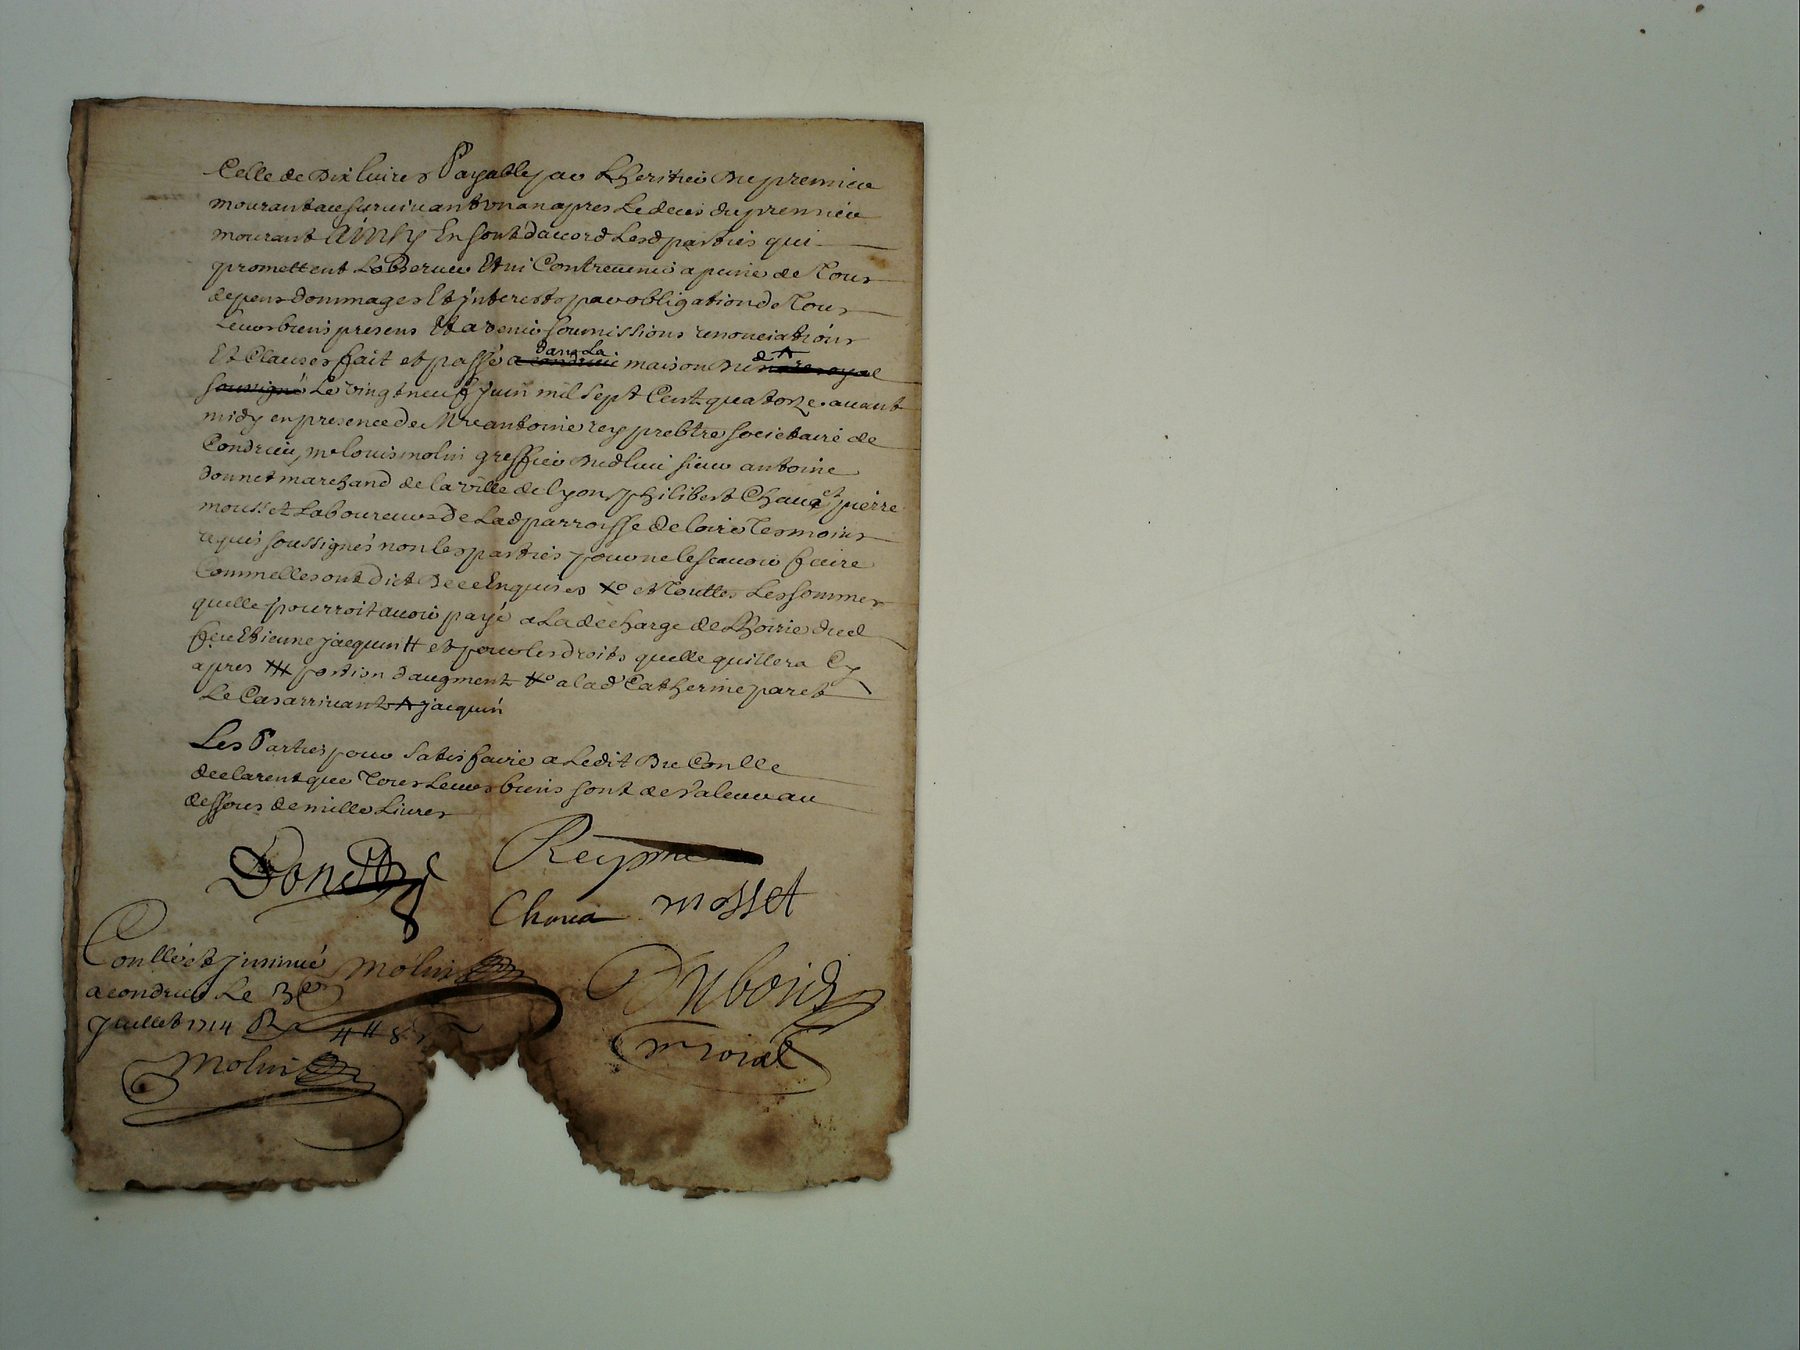 Celle de dix livres Payable par Lheritier du premier
mourant au survivant un an apres Le deces du premier
mourant Ainsy En sont daccord Lesd parties qui
promettent Lobserver Et ni Contrevenir a peine de Tous
depens dommages Et jnterests par obligation de Tous
Leurs biens presens Et a venir soumissions renonciations
Et Clauses fait et passé a condrieu dans La maison du d ^ notre royal
soussigné Le vingt neuf Juin mil sept Cent quatorze avant
midy en presence de Mre antoine rey prebtre societaire de
Condrieu, me louis molin greffier dud lieu sieur antoine
donnet marchand de la ville de lyon philibert Chava et pierre
mousset Laboureurs de Lad parroisse de loire Tesmoins
requis soussignés non les parties pour ne le scavoir faire
Comme elles ont dict de ce Enquises et Touttes Les sommes
quelle pourroit avoir payé a La decharge de Lhoirie dud
feu Etienne jacquin # et pour les droits quelle quillera Cy
apres portion daugment a lad Catherine paret
Le Cas arrivant jacquin
Les Parties pour satisfaire a Ledit du Conlle
declarent que Tous Leurs biens sont de valeur au
dessous de mille Livres
Donet
Rey pre
Chava mosset
Conllé et jnsinué molin
a condrieu Le 3e
Juillet 1714 R
Dubois
molin
nre roial